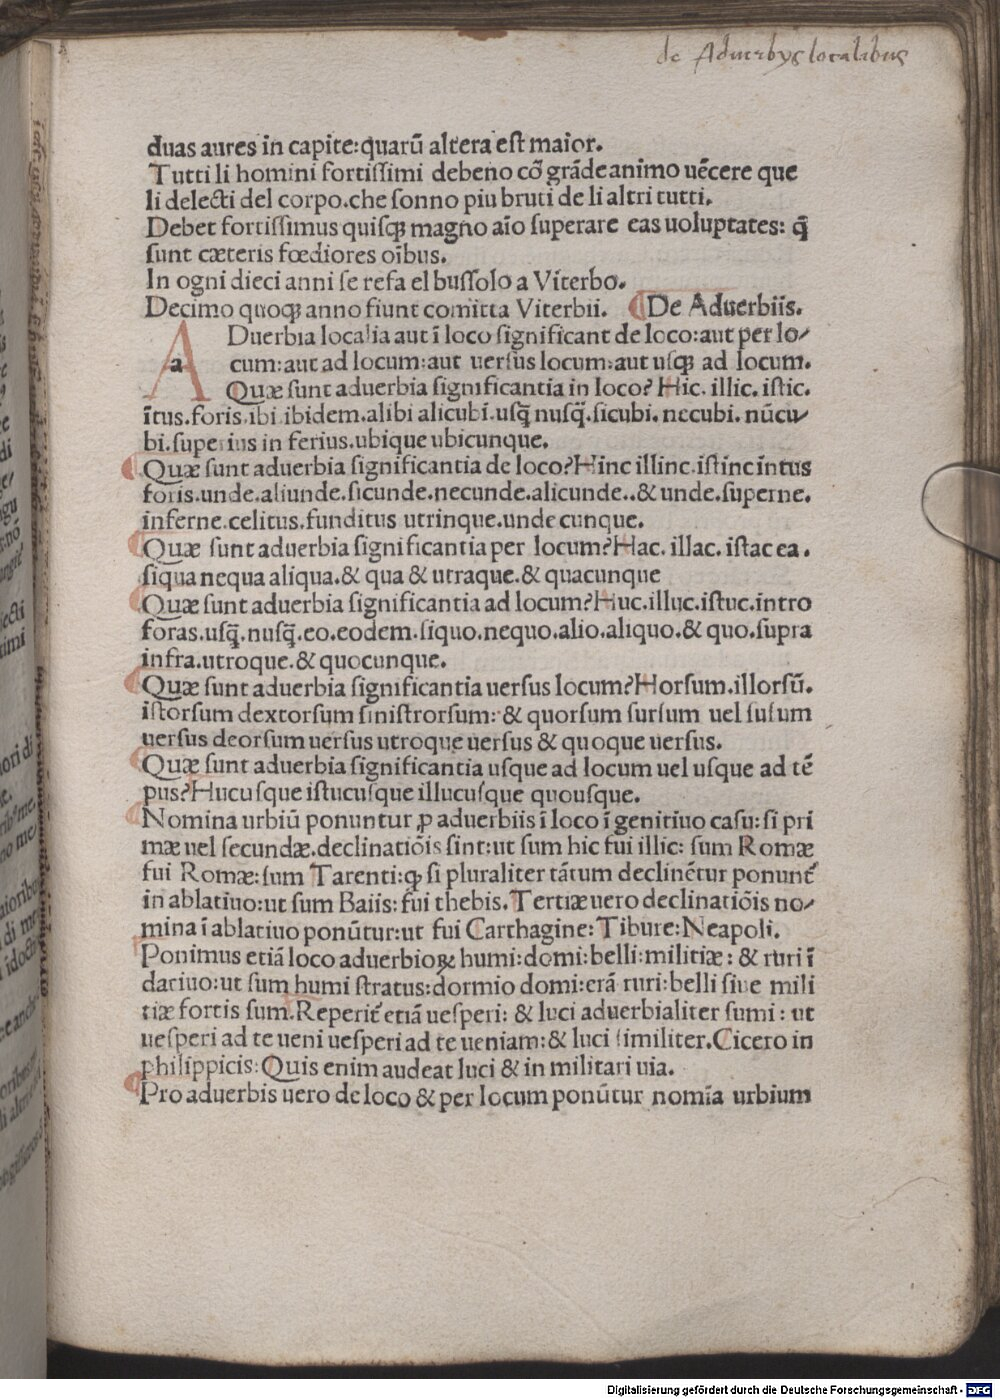 de Aduerbijs localibus
duas aures in capite:quarū altera est maior.
Tutti li homini fortiſſimi debeno cō grāde animo uēcere que
li delecti del corpo.che ſonno piu bruti de li altri tutti.
Debet fortiſſimus quiſqꝫ magno aīo ſuperare eas uoluptates: q̄
ſunt cæteris fœdiores oībus.
In ogni dieci anni ſe refa el buſſolo a Viterbo.
Decimo quoqꝫ anno fiunt comitta Viterbii. ¶De Aduerbiis.
A Duerbia localia aut ī loco ſignificant de loco:aut per lo⸗
a cum:aut ad locum:aut uerſus locum:aut uſqꝫ ad locum.
Quæ ſunt aduerbia ſignificantia in loco? Hic. illic. iſtic.
ītus.foris.ibi ibidem.alibi alicubi.uſq̄ nuſq̄.ſicubi.necubi.nūcu⸗
bi.ſuperius in ferius.ubique ubicunque.
¶Quæ ſunt aduerbia ſignificantia de loco?Hinc illinc.iſtinc intus
foris.unde.aliunde.ſicunde.necunde.alicunde..& unde.ſuperne.
inferne.celitus.funditus utrinque.unde cunque.
¶Quæ ſunt aduerbia ſignificantia per locum?Hac. illac. iſtac ea.
ſiqua nequa aliqua.& qua & utraque.& quacunque
¶Quæ ſunt aduerbia ſignificantia ad locum?Huc.illuc.iſtuc.intro
foras.uſq̄.nuſq̄.eo.eodem.ſiquo.nequo.alio.aliquo.& quo.ſupra
infra.utroque.& quocunque.
¶Quæ ſunt aduerbia ſignificantia uerſus locum?Horſum.illorſū.
iſtorſum dextorſum ſiniſtrorſum:& quorſum ſurſum uel ſuſum
uerſus deorſum uerſus utroque uerſus & quoque uerſus.
¶Quæ ſunt aduerbia ſignificantia uſque ad locum uel uſque ad tē
pus?Hucuſque iſtucuſque illucuſque quouſque.
¶Nomina urbiū ponuntur ꝓ aduerbiis ī loco ī genitiuo caſu:ſi pri
mæ uel ſecundæ.declinatiōis ſint:ut ſum hic fui illic: ſum Romæ
fui Romæ:ſum Tarenti:qꝫ ſi pluraliter tātum declinētur ponunt᷑
in ablatiuo:ut ſum Baiis: fui thebis. Tertiæ uero declinatiōis no⸗
mina ī ablatiuo ponūtur:ut fui Carthagine:Tibure:Neapoli.
Ponimus etiā loco aduerbioꝝ humi:domi:belli:militiæ: & ruri ī
datiuo:ut ſum humi ſtratus:dormio domi:erā ruri:belli ſiue mili
tiæ fortis ſum.Reperit᷑ etiā ueſperi: & luci aduerbialiter ſumi: ut
ueſperi ad te ueni ueſperi ad te ueniam:& luci ſimiliter.Cicero in
philippicis:Quis enim audeat luci & in militari uia.
¶Pro aduerbis uero de loco & per locum ponūtur nomīa urbium
Digitalisierung gefördert durch die Deutsche Forschungsgemeinschaft - DFG